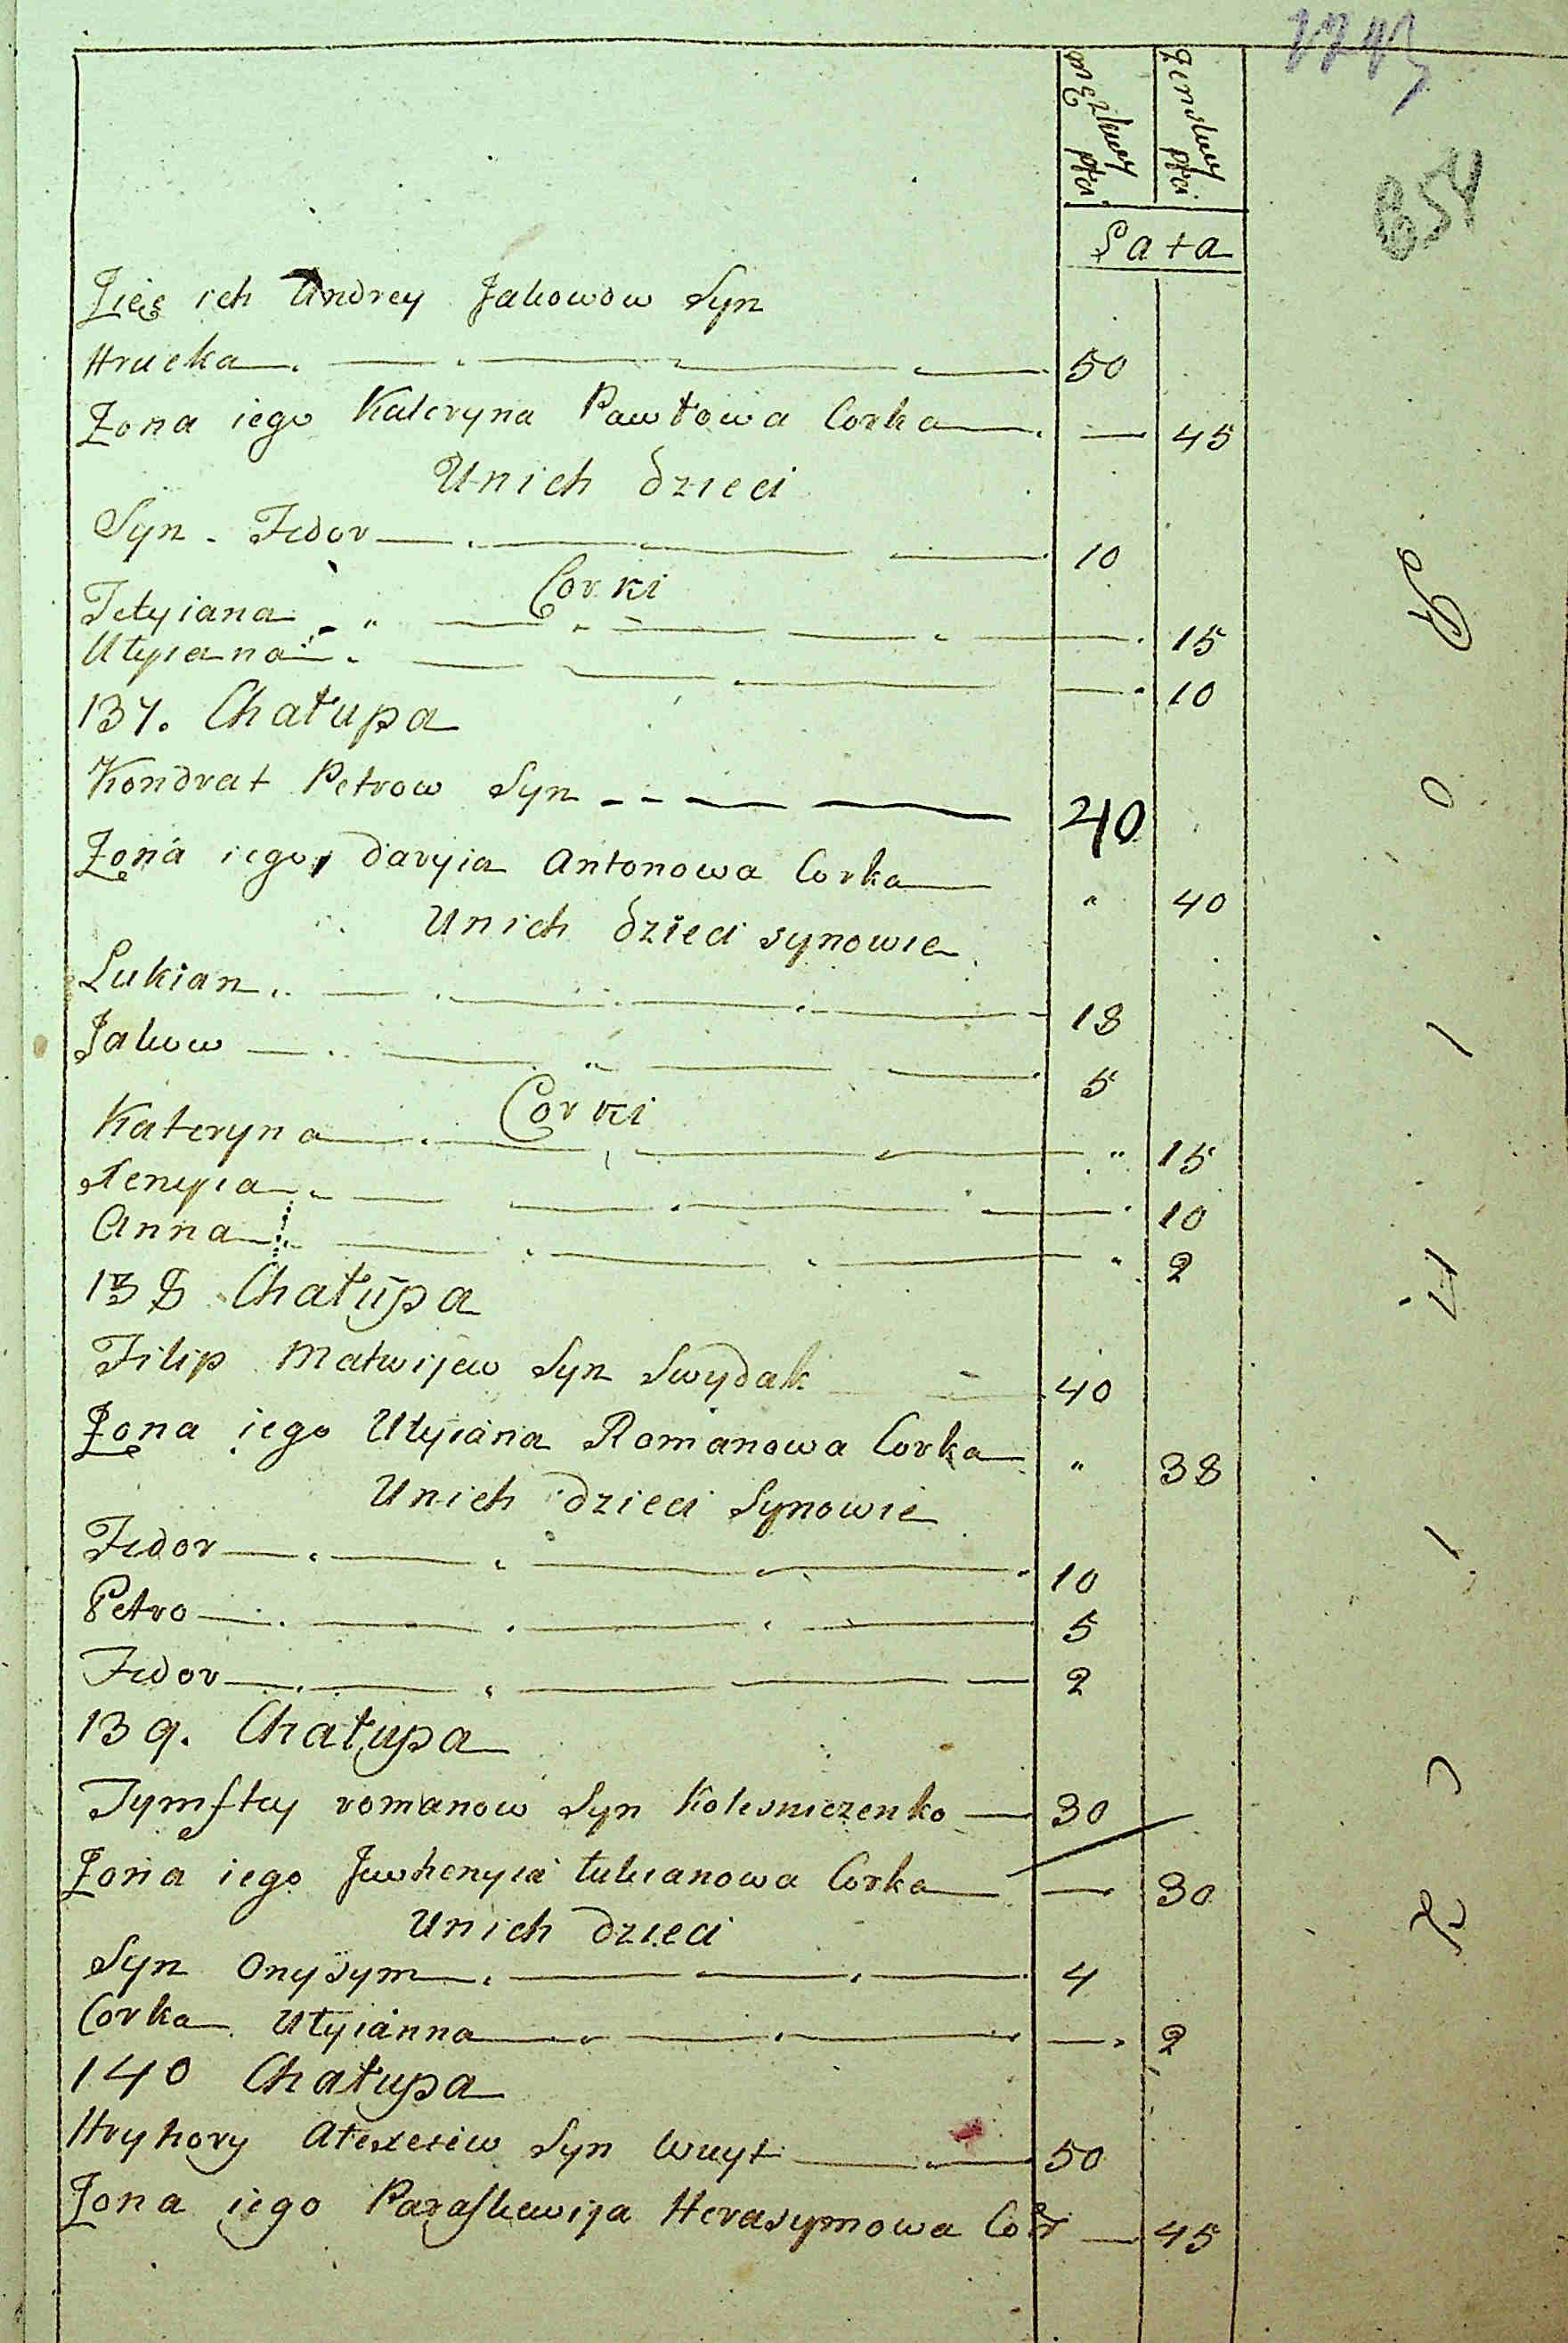 męzkiey płci
żenskiey płci
Lata
854
Zięć ich Andrey Jakowow Syn
Hrucka 50
Żona iego Kateryna Pawłowa Corka — 45
U nich dzieci
Syn - Fedor 10
Corki
Tetyiana 15
Ulyiana 10
137. Chałupa
Kondrat Petrow Syn 40
Żona iego Daryia Antonowa Corka " 40
U nich dzieci synowie
Lukian 18
Jakow 5
Corki
Kateryna " 15
Xenyia 10
Anna " 2
138 Chałupa
Filip Matwijew Syn Swydak 40
Żona iego Ulyiana Romanowa Corka " 38
U nich dzieci Synowie
Fedor 10
Petro 5
Fedor 2
139. Chałupa
Tymftey romanow Syn Kolesniczenko 30
Żona iego Jewhenyia łukianowa Corka — 30
U nich dzieci
Syn Onysym 4
Corka Ulyianna — 2
140 Chałupa
Hryhory Alexeiew Syn Wuyt 50
Żona iego Paraskewija Herasymowa Cor — 45